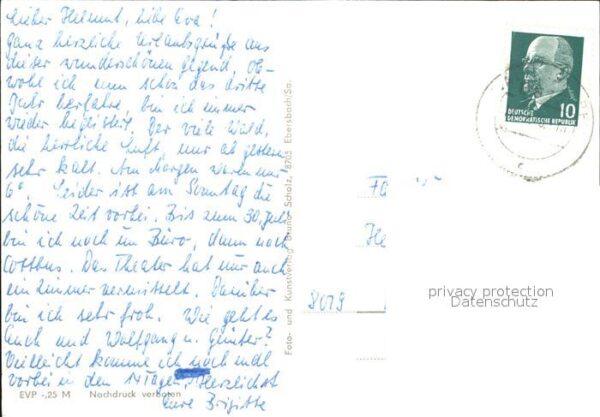 Lieber Helmut, liebe Eva!
ganz herzliche Urlaubsgrüße aus
dieser wunderschönen Gegend. Ob-
wohl ich nun schon das dritte
Jahr herfahre, bin ich immer
wieder begeistert. Der viele Wald,
die herrliche Luft, nur ab gestern
sehr kalt. Am Morgen waren nur
6°. Leider ist am Sonntag die
schöne Zeit vorbei. Bis zum 30. Juli
bin ich noch im Büro, dann nach
Cottbus. Das Theater hat mir auch
ein Zimmer vermittelt. Darüber
bin ich sehr froh. Wie geht es
Euch und Wolfgang u. Günter?
Vielleicht komme ich noch mal
vorbei in den 14 Tagen. Herzlichst
Eure Brigitte
EVP -,25 M Nachdruck verboten
Foto- und Kunstverlag Bruno Scholz, 8705 Ebersbach/Sa.
10
DEUTSCHE
DEMOKRATISCHE REPUBLIK
8019
privacy protection
Datenschutz